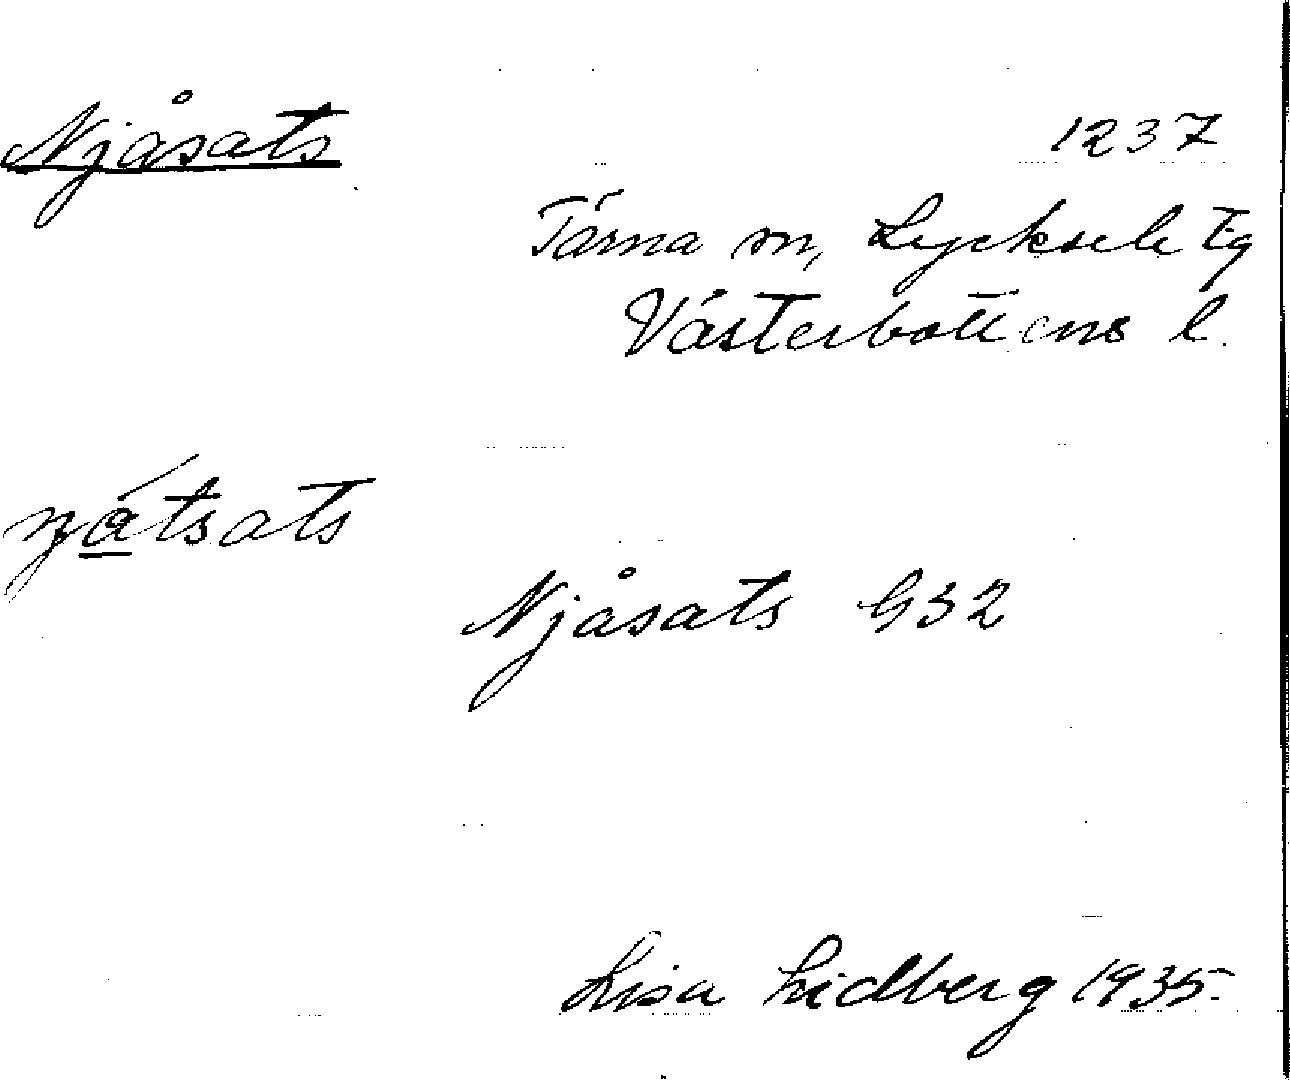 Njåsats
1237
Tärna sn, Lycksele tg
Västerbottens l.
ŋá̱tsats
Njåsats G32
Lisa Lidberg 1935.